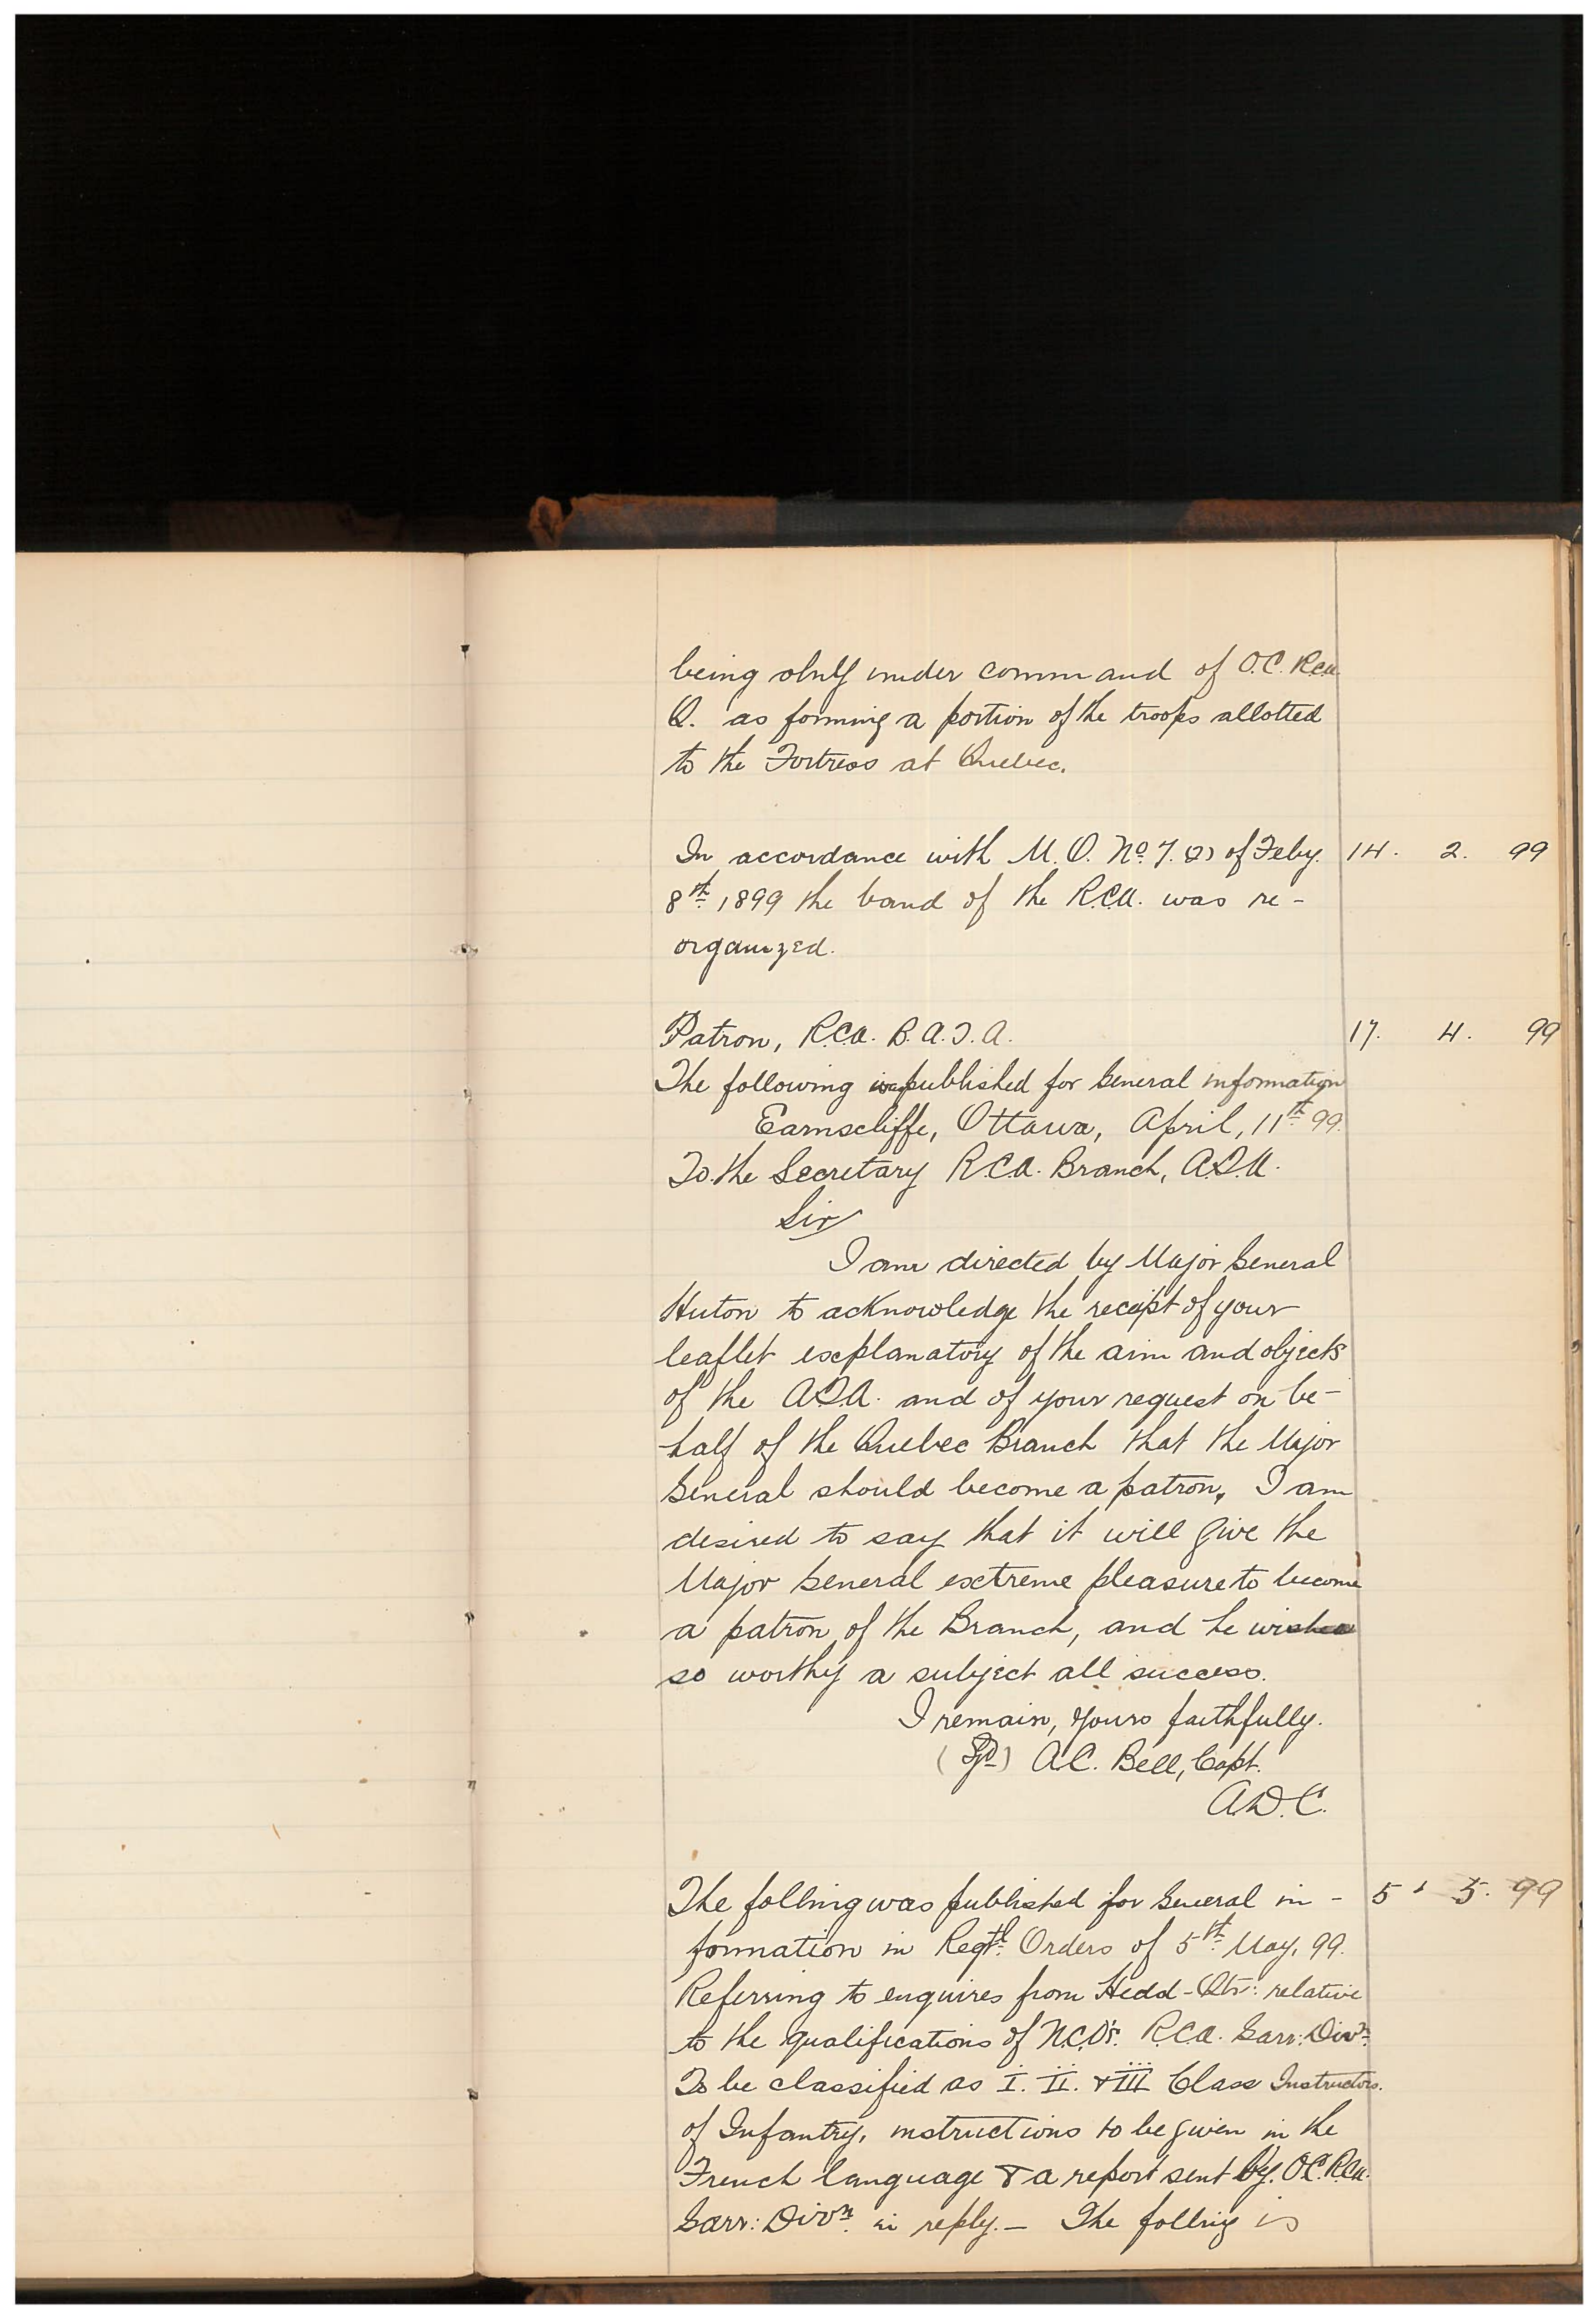 being only under command of O.C. R.C.A.
Q. as forming a portion of the troops allotted
to the Fortress at Quebec.
In accordance with M.O. No. 7. (2) of Feby. 14. 2. 99
8th. 1899 the band of the R.C.A. was re-
organized.
Patron, R.C.A. B.A.T.A. 17. 4. 99
The following is published for General information
Earnscliffe, Ottawa, April, 11th 99.
To the Secretary R.C.A. Branch, A.T.A.
Sir
I am directed by Major General
Huton to acknowledge the receipt of your
leaflet explanatory of the aim and objects
of the A.T.A. and of your request on be-
half of the Quebec Branch that the Major
General should become a patron, I am
desired to say that it will give the
Major General extreme pleasure to become
a patron of the Branch, and he wishes
so worthy a subject all success.
I remain, Yours faithfully.
(Sgd) A.C. Bell, Capt.
A.D.C.
The follnig was published for General in- 5. 5. 99
formation in Regtl. Orders of 5th. May, 99.
Referring to enquires from Hedd-Qtr: relative
to the qualifications of N.C.O's. R.C.A. Garr: Divn.
To be classified as I. II. & III Class Instructors.
of Infantry, instructions to be given in the
French language & a report sent by O.C. R.C.A.
Garr: Divn. in reply.— The follnig is